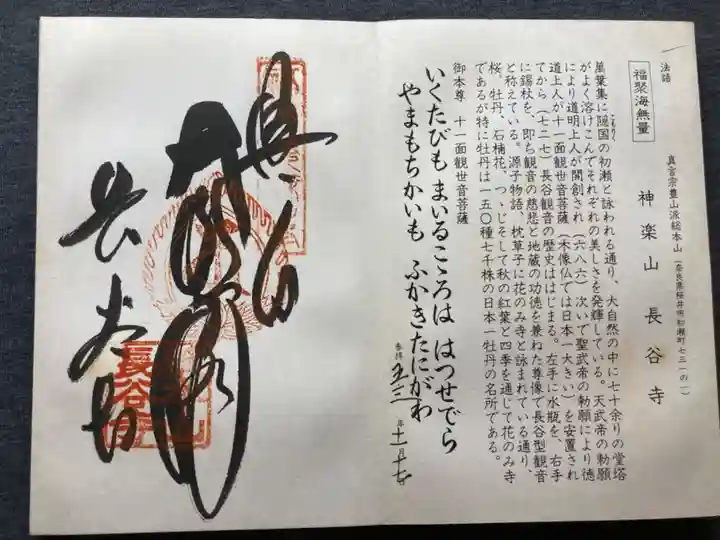 法語
福聚海無量
真言宗豊山派総本山(奈良県桜井市初瀬町七三一の一)
神楽山 長谷寺
萬葉集に隠国の初瀬と詠われる通り、大自然の中に七十余りの堂塔
がよく溶けこんでそれぞれの美しさを発揮している。天武帝の勅願
により道明上人が開創され(六八六)次いで聖武帝の勅願により徳
道上人が十一面観世音菩薩(木像仏では日本一大きい)を安置され
てから(七二七)長谷観音の歴史ははじまる。左手に水瓶を、右手
に錫杖を、即ち観音の慈悲と地蔵の功徳を兼ねた尊像で長谷型観音
と称えている。源子物語、枕草子に花のみ寺と詠まれている通り、
桜、牡丹、石楠花、つゝじそして秋の紅葉と四季を通じて花のみ寺
であるが特に牡丹は一五〇種七千株の日本一牡丹の名所である。
御本尊 十一面観世音菩薩
いくたびも まいるこゝろは はつせでら
やまもちかいも ふかきたにがわ
参拝
年十一月十七日
長谷寺